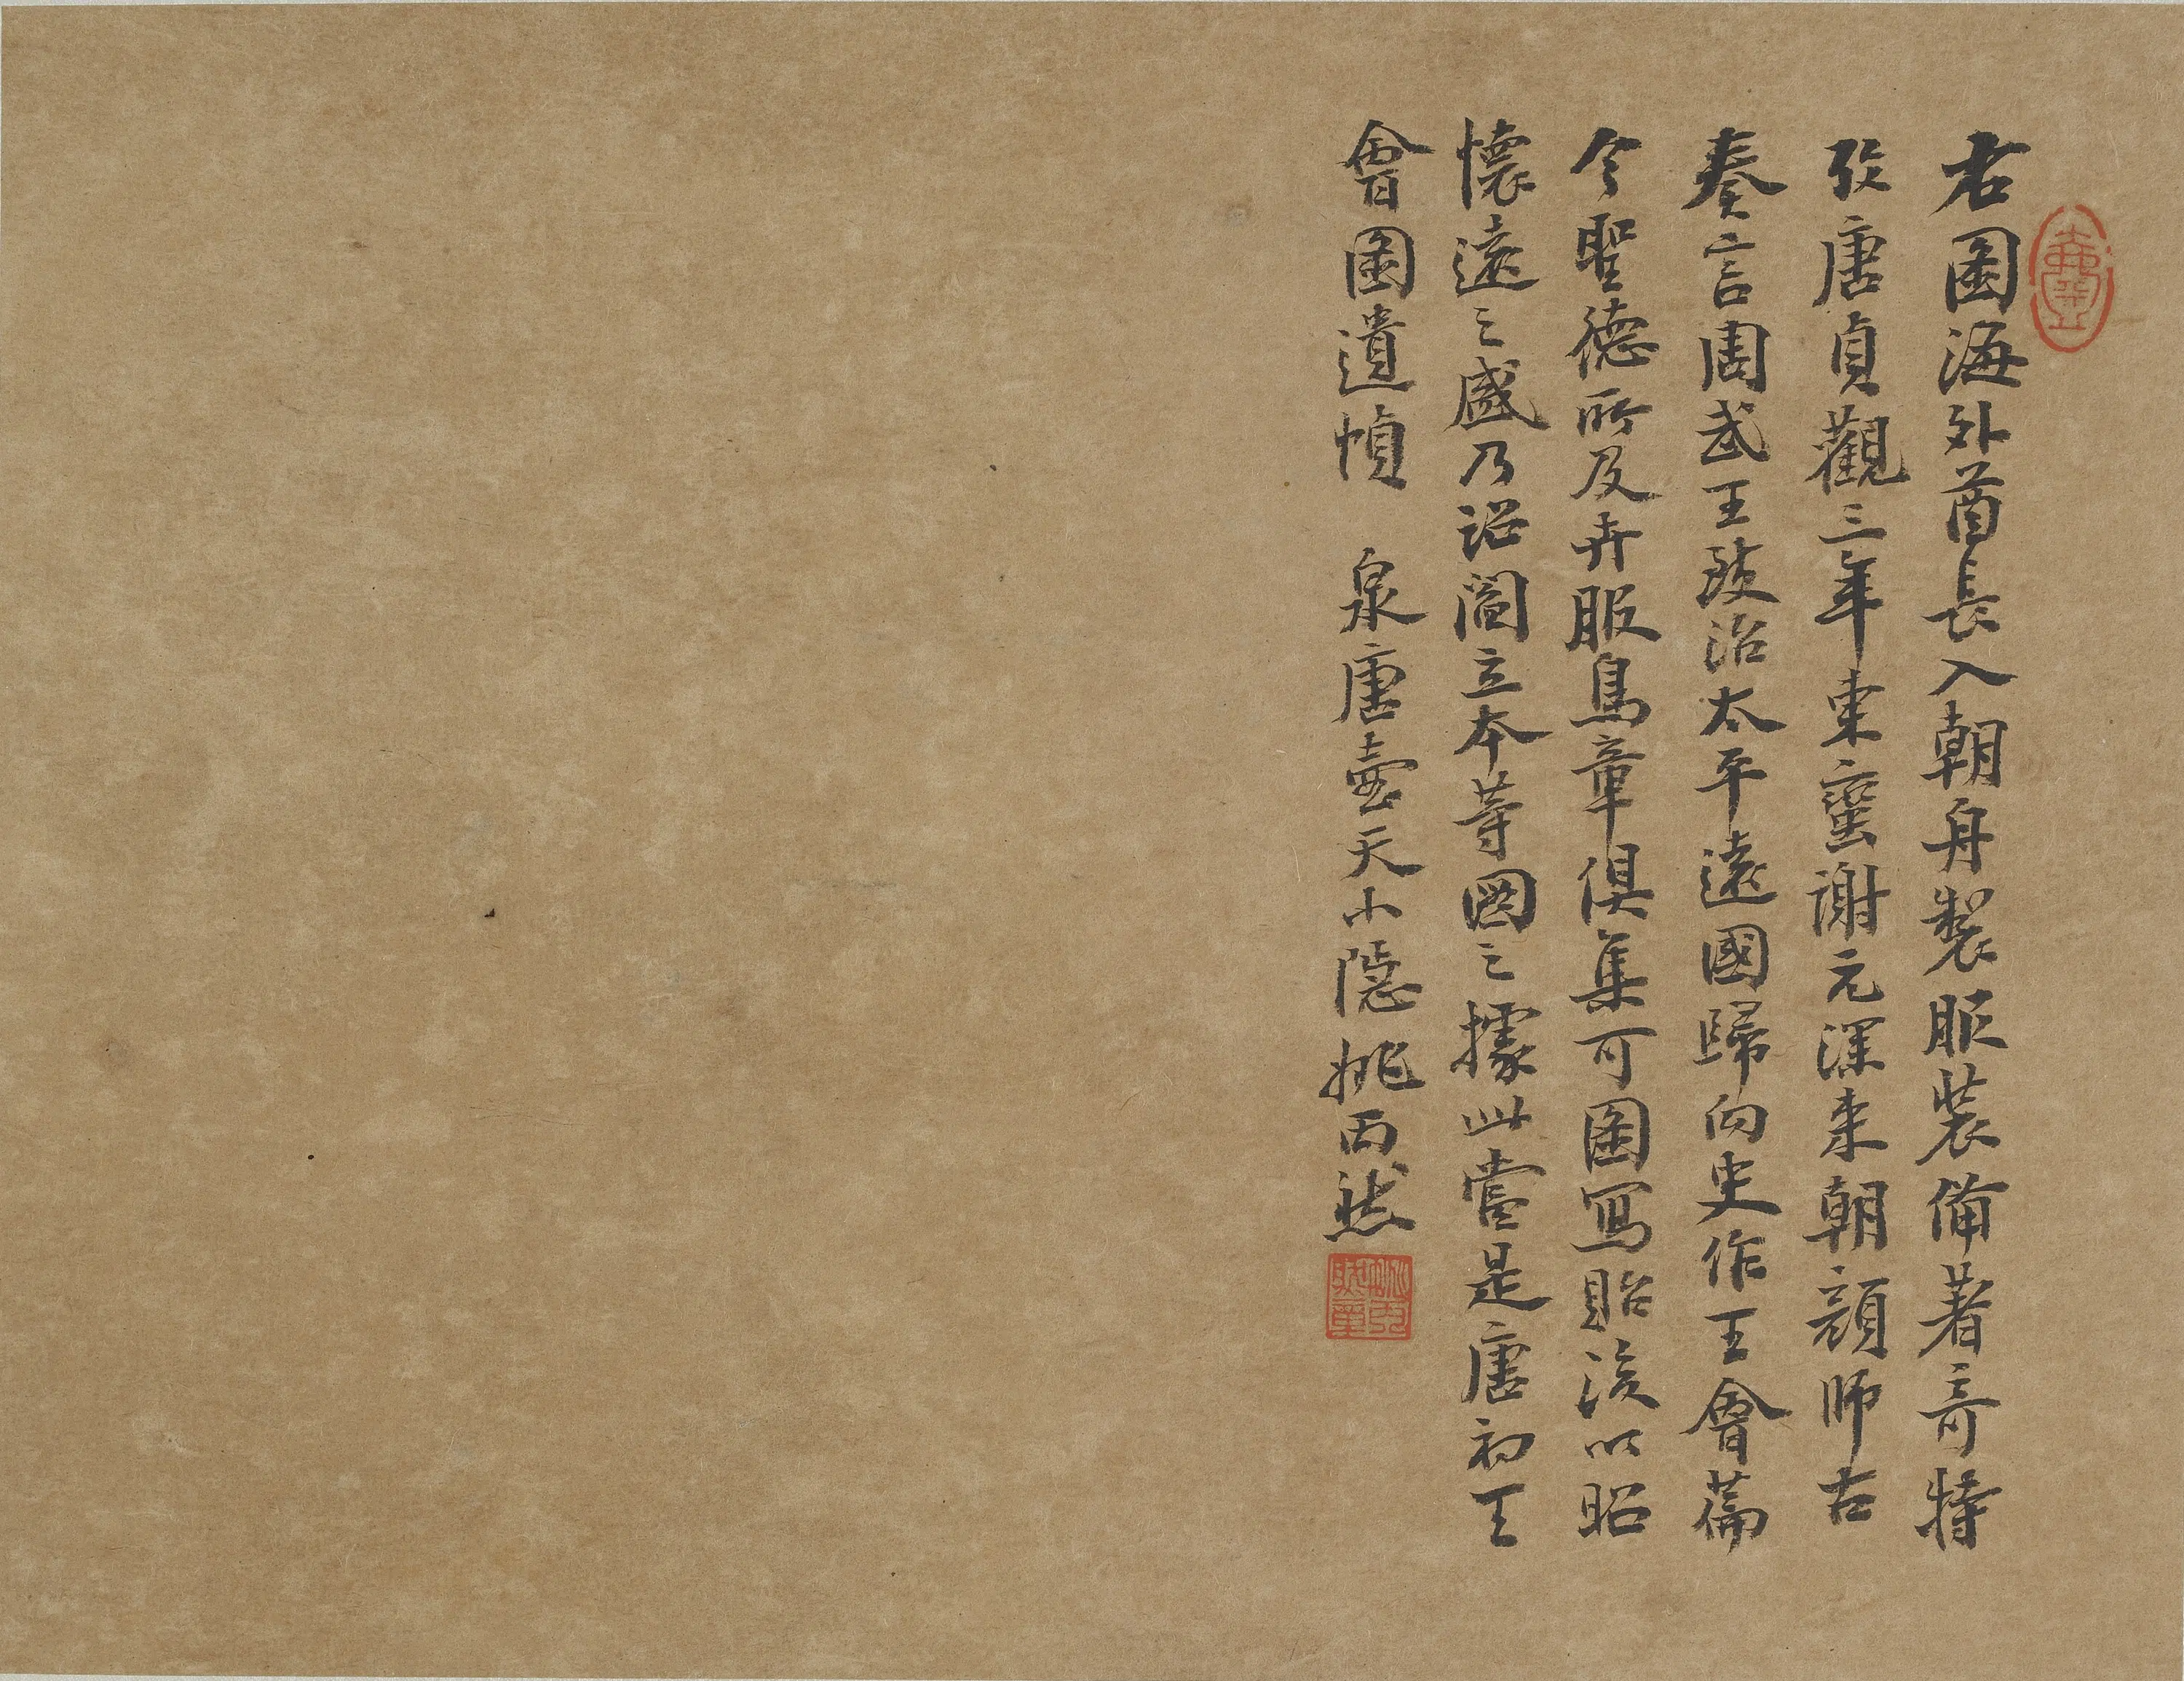 右圖海外酋長入朝舟製服裝備著奇特
攷唐貞觀三年東蠻謝元深来朝顔師古
奏言周武王致治太平遠國歸向史作王會篇
今聖德所及卉服鳥章俱集可圖寫貽後以昭
懷遠之盛乃詔閻立本等圖之據此當是唐初王
會圖遺幀　泉唐壺天小隱姚丙然